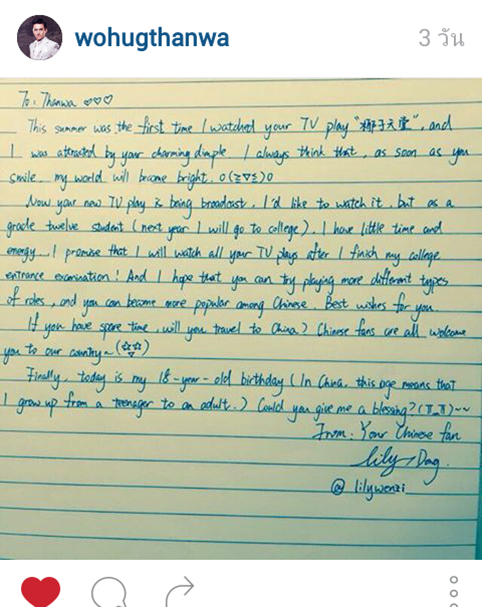 wohugthanwa
3 วัน
To: Thanwa ♡♡♡
This summer was the first time I watched your TV play "椰子天堂", and
I was attracted by your charming dimple. I always think that, as soon as you
smile, my world will become bright. o(≧▽≦)o
Now your new TV play is being broadcast. I'd like to watch it, but as a
grade twelve student (next year I will go to college). I have little time and
energy... I promise that I will watch all your TV plays after I finish my college
entrance examination! And I hope that you can try playing more different types
of roles, and you can become more popular among Chinese. Best wishes for you.
If you have spare time, will you travel to China? Chinese fans are all welcome
you to our country~ (☆▽☆)
Finally, today is my 18-year-old birthday (In China, this age means that
I grow up from a teenager to an adult.) Could you give me a blessing? (π_π)~~
From: Your Chinese fan
Lily Dong.
@ lilywenzi